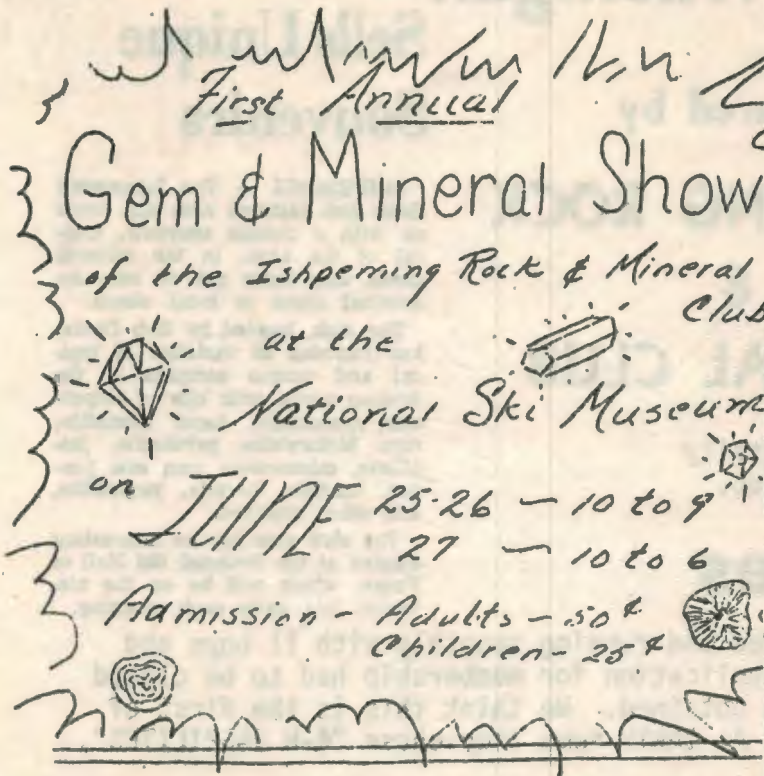 First Annual
Gem & Mineral Show
of the Ishpeming Rock & Mineral
Club
at the
National Ski Museum
on JUNE 25-26 — 10 to 9
27 — 10 to 6
Admission - Adults - .50¢
Children - 25¢